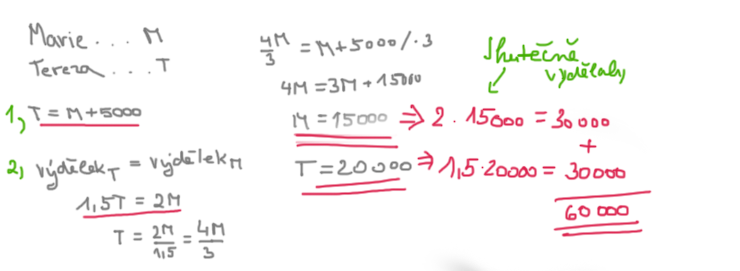 Marie . . . M
Tereza . . . T
1, T = M+5000
2, výdělek_T = výdělek_M
1,5T = 2M
T = 2M/1,5 = 4M/3
4M/3 = M+5000 /·3
4M = 3M + 15000
M = 15000 ⇒ 2 · 15000 = 30000
+
T = 20000 ⇒ 1,5·20000 = 30000
60000
Skutečně
vydělaly